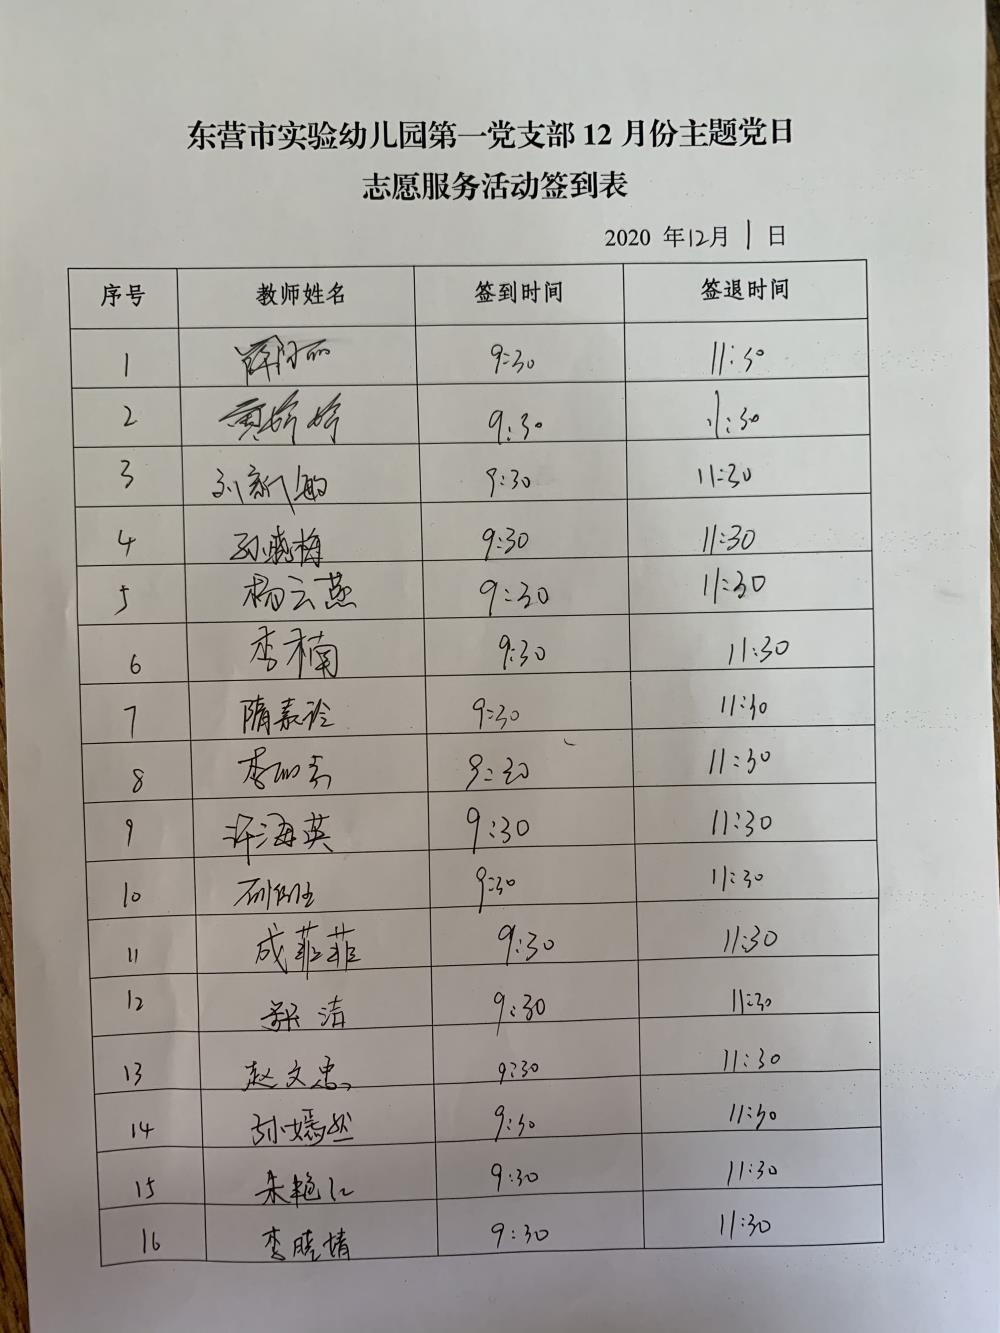 东营市实验幼儿园第一党支部 12 月份主题党日
志愿服务活动签到表
2020 年12月 1 日
序号 教师姓名 签到时间 签退时间
1 9:30 11:30
2 黄婷婷 9:30 11:30
3 刘新敏 9:30 11:30
4 孙晓梅 9:30 11:30
5 杨云燕 9:30 11:30
6 李楠 9:30 11:30
7 隋嘉 9:30 11:30
8 李 9:30 11:30
9 许海英 9:30 11:30
10 9:30 11:30
11 成菲菲 9:30 11:30
12 洁 9:30 11:30
13 赵文忠 9:30 11:30
14 孙嫣然 9:30 11:30
15 朱艳红 9:30 11:30
16 李晓婧 9:30 11:30